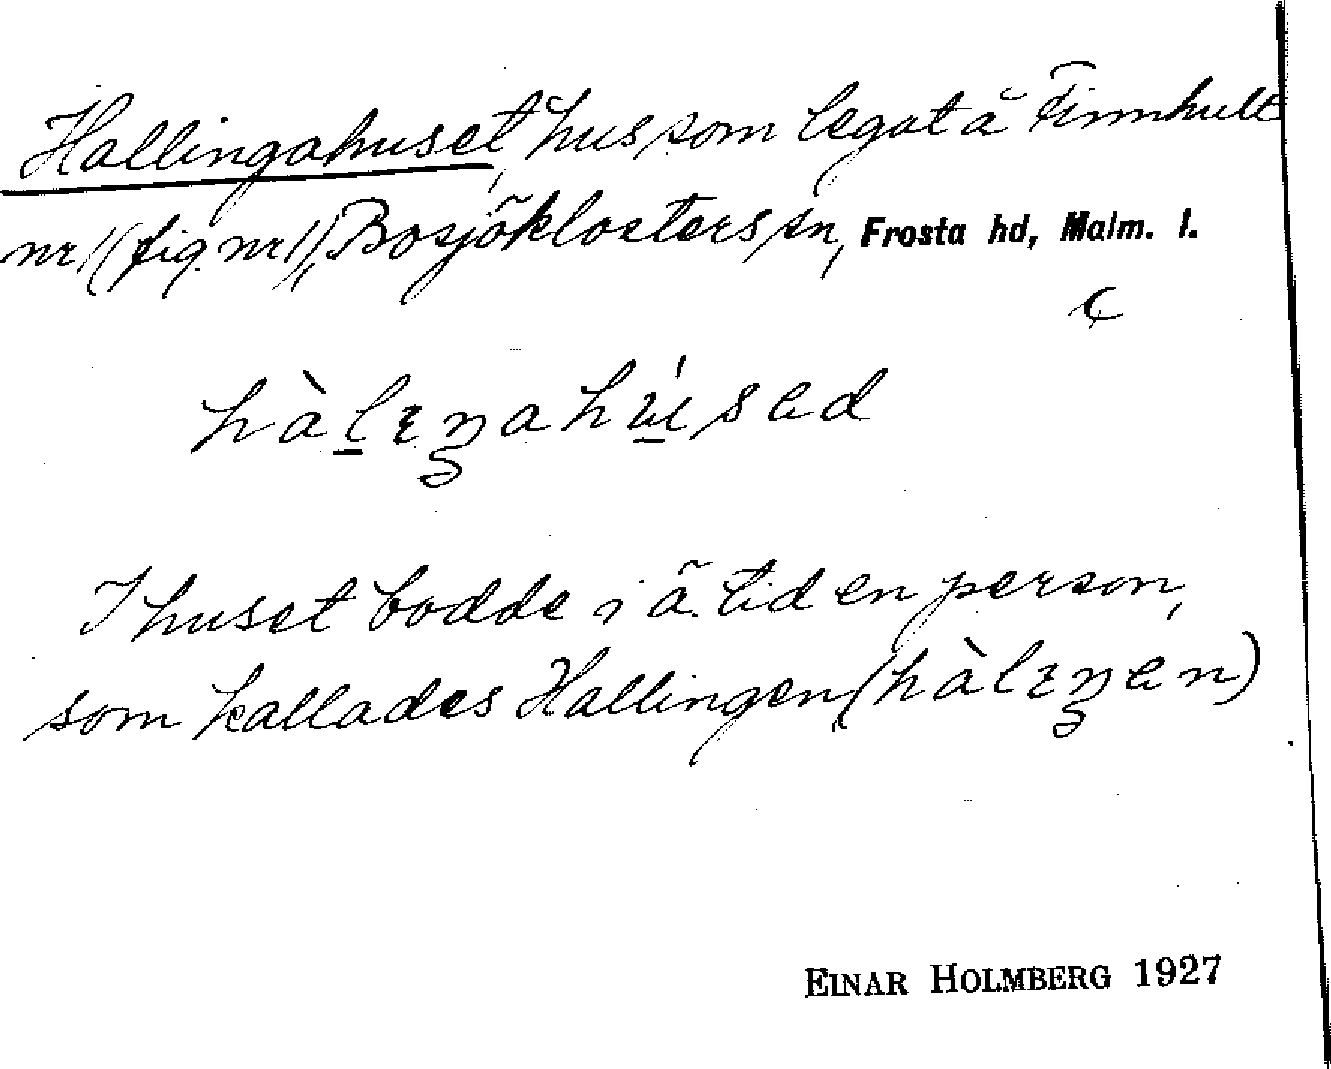 Hallingahuset, hus som legat å Finnhult
nr 1 (fig. nr 1), Bosjöklosters sn, Frosta hd, Malm. l.
I huset bodde i ä. tid en person,
som kallades Hallingen (hàlɪŋen)
EINAR HOLMBERG 1927